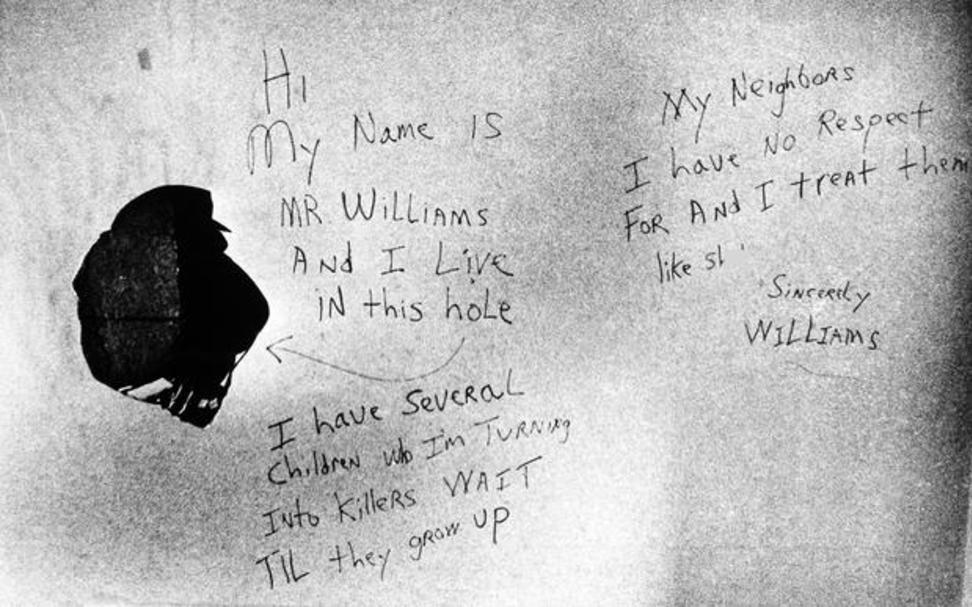 Hi
My Name IS
MR WilliAMS
And I Live
IN this hole
I have SeveRAL
Children who I'm TURNing
Into KilleRS WAIT
TIL they grow UP
My NeighboRS
I have NO Respect
FoR And I tREAT them
like
Sincerely
WILLIAMS